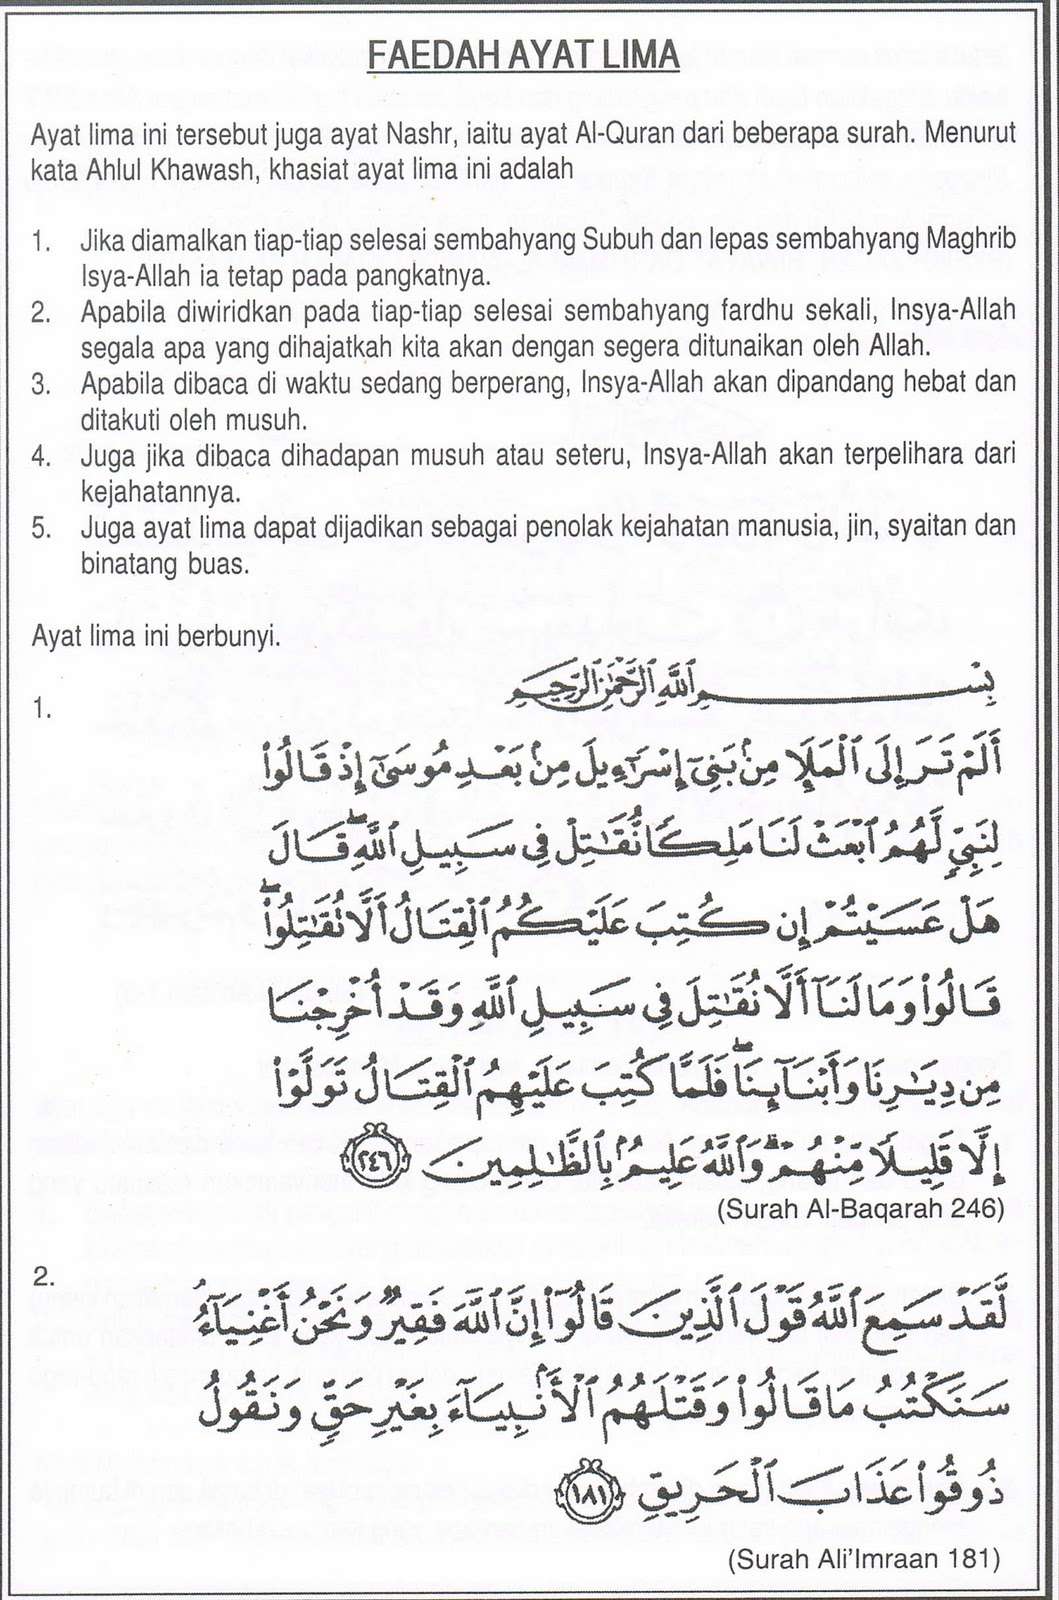 FAEDAH AYAT LIMA
Ayat lima ini tersebut juga ayat Nashr, iaitu ayat Al-Quran dari beberapa surah. Menurut
kata Ahlul Khawash, khasiat ayat lima ini adalah
1. Jika diamalkan tiap-tiap selesai sembahyang Subuh dan lepas sembahyang Maghrib
Isya-Allah ia tetap pada pangkatnya.
2. Apabila diwiridkan pada tiap-tiap selesai sembahyang fardhu sekali, Insya-Allah
segala apa yang dihajatkah kita akan dengan segera ditunaikan oleh Allah.
3. Apabila dibaca di waktu sedang berperang, Insya-Allah akan dipandang hebat dan
ditakuti oleh musuh.
4. Juga jika dibaca dihadapan musuh atau seteru, Insya-Allah akan terpelihara dari
kejahatannya.
5. Juga ayat lima dapat dijadikan sebagai penolak kejahatan manusia, jin, syaitan dan
binatang buas.
Ayat lima ini berbunyi.
1.
بِسْمِ ٱللَّهِ ٱلرَّحْمَٰنِ ٱلرَّحِيمِ
أَلَمْ تَرَ إِلَى ٱلْمَلَإِ مِنۢ بَنِىٓ إِسْرَٰٓءِيلَ مِنۢ بَعْدِ مُوسَىٰٓ إِذْ قَالُوا۟
لِنَبِىٍّ لَّهُمُ ٱبْعَثْ لَنَا مَلِكًا نُّقَٰتِلْ فِى سَبِيلِ ٱللَّهِ ۖ قَالَ
هَلْ عَسَيْتُمْ إِن كُتِبَ عَلَيْكُمُ ٱلْقِتَالُ أَلَّا تُقَٰتِلُوا۟ ۖ
قَالُوا۟ وَمَا لَنَآ أَلَّا نُقَٰتِلَ فِى سَبِيلِ ٱللَّهِ وَقَدْ أُخْرِجْنَا
مِن دِيَٰرِنَا وَأَبْنَآئِنَا ۖ فَلَمَّا كُتِبَ عَلَيْهِمُ ٱلْقِتَالُ تَوَلَّوْا۟
إِلَّا قَلِيلًا مِّنْهُمْ ۗ وَٱللَّهُ عَلِيمٌۢ بِٱلظَّٰلِمِينَ ٢٤٦
(Surah Al-Baqarah 246)
2.
لَّقَدْ سَمِعَ ٱللَّهُ قَوْلَ ٱلَّذِينَ قَالُوٓا۟ إِنَّ ٱللَّهَ فَقِيرٌ وَنَحْنُ أَغْنِيَآءُ ۘ
سَنَكْتُبُ مَا قَالُوا۟ وَقَتْلَهُمُ ٱلْأَنۢبِيَآءَ بِغَيْرِ حَقٍّ وَنَقُولُ
ذُوقُوا۟ عَذَابَ ٱلْحَرِيقِ ١٨١
(Surah Ali'Imraan 181)